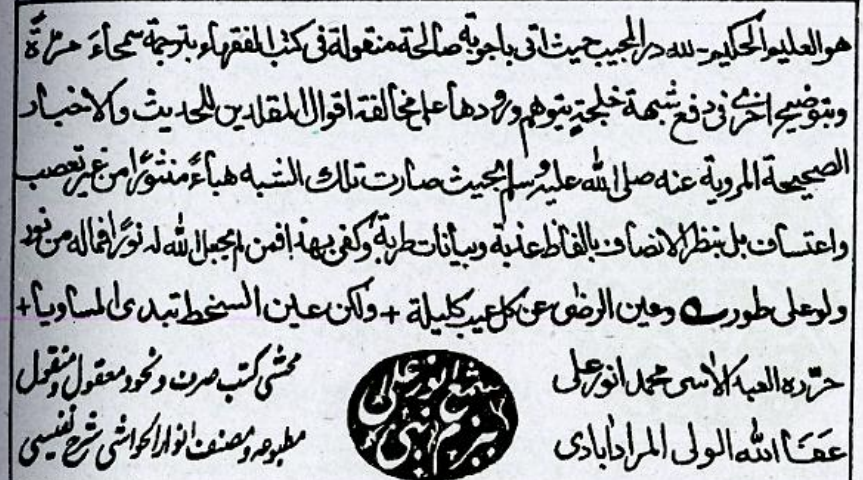 هو العليم الحكيم - لله در المجيب حيث اتى باجوبة صالحة منقولة فى كتب الفقهاء بتوجهة سمحاء مرّةً
وبتوضيح اخرى فى دفع شبهة خلجة يتوهم ورودها على مخالفة اقوال المقلدين للحديث والاخبار
الصحيحة المروية عنه صلى الله عليه وسلم بحيث صارت تلك الشبه هباءً منثورًا من غير تعصب
واعتساف بل بنظر الانصاف بالفاظ عذبة وبيانات طربة وكفى بهذا فمن لم يجعل الله له نورًا فماله من نور
ولو على طور ؎ وعين الرضى عن كل عيب كليلة + ولكن عين السخط تبدى المساويا +
حرّره العبد الاسى محمد انور على
عفا الله الولى المرادابادى
شمع انور على
بزم نبى
محشى كتب صرف ونحو ومعقول ومنقول
مطبوعه ومصنف انوار الحواشى شرح نفيسى